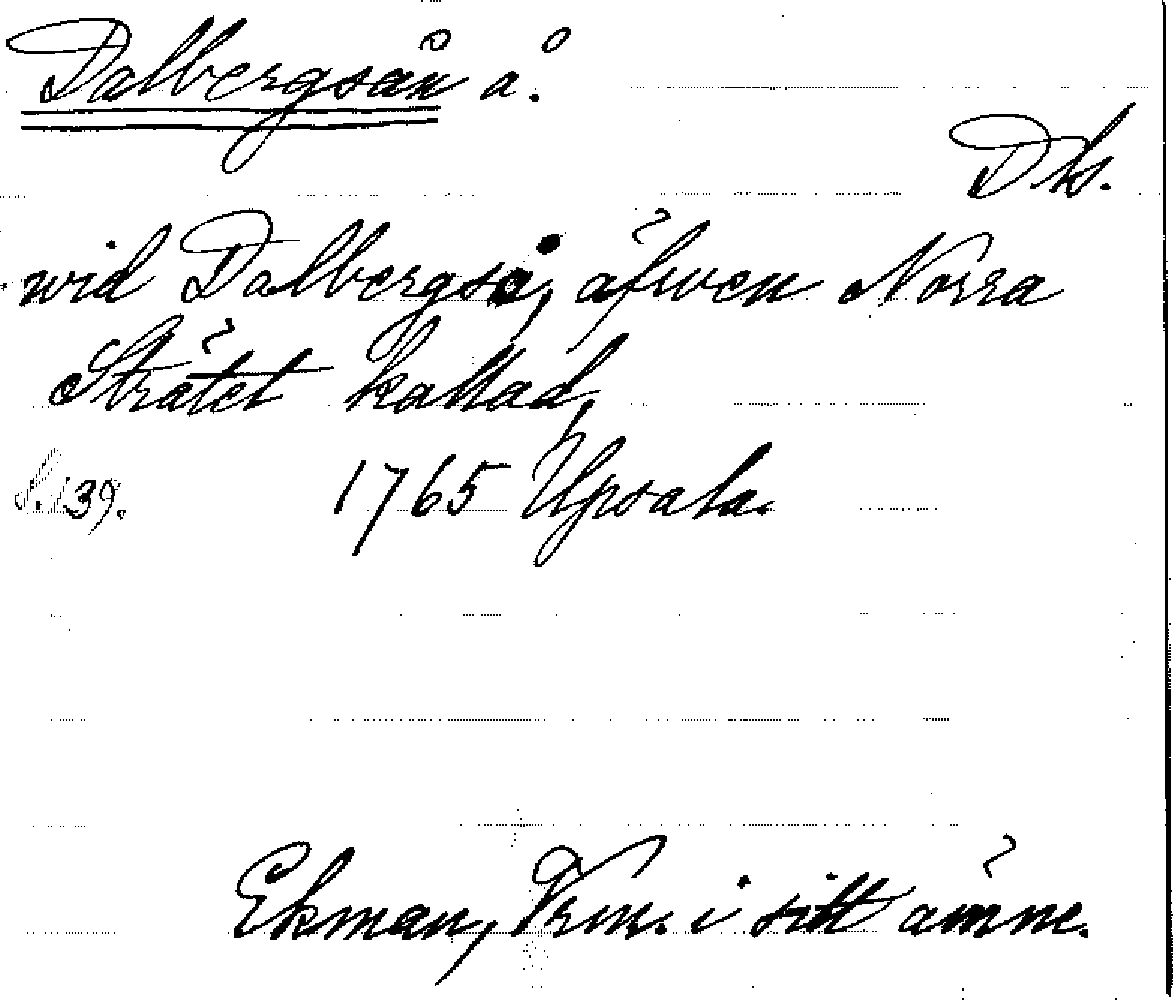 Dalbergsån å.
Dls.
wid Dalbergså, äfwen Norra
Strätet kallad,
S. 139. 1765 Upsala.
Ekman, Vrm. i sitt ämne.